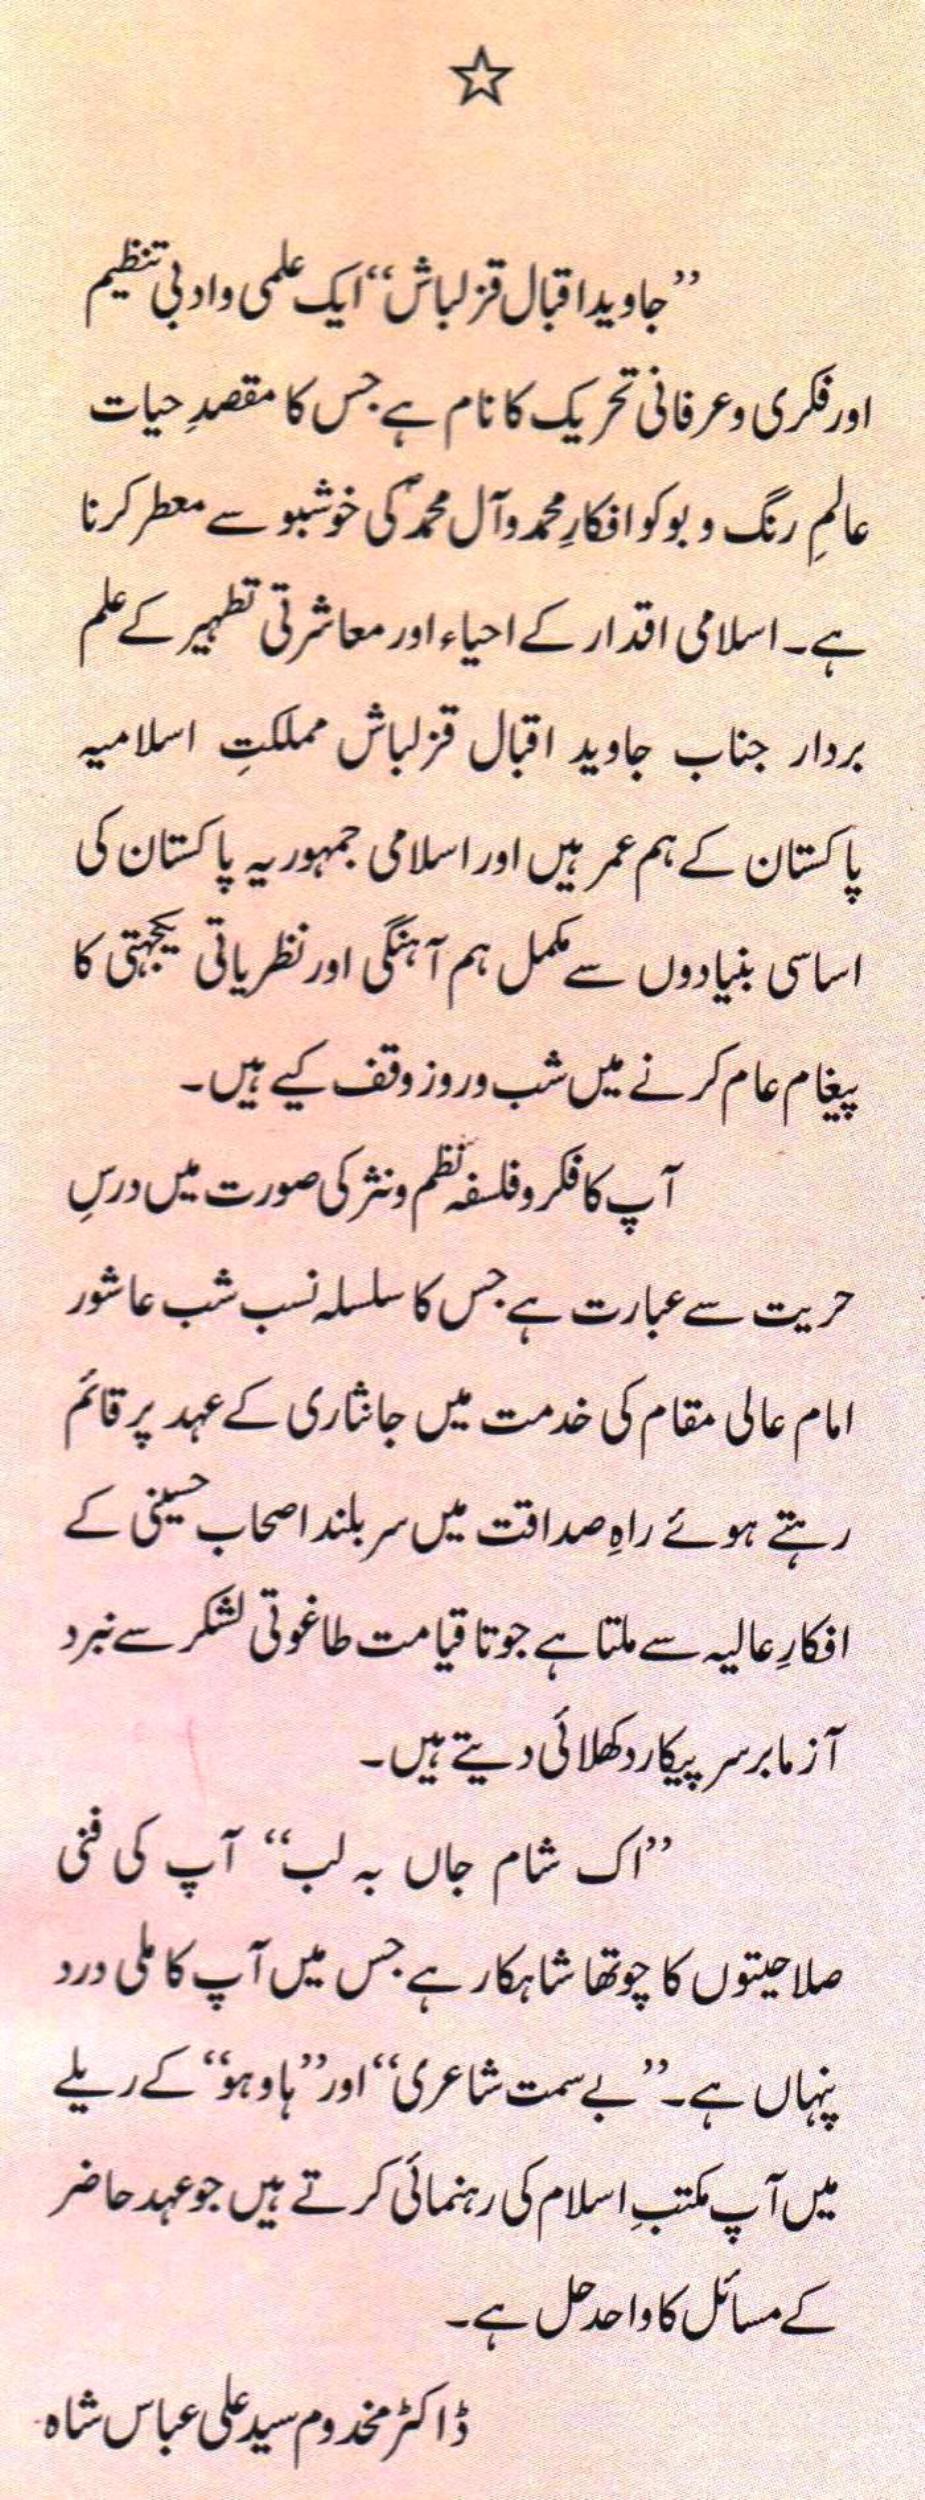 ”جاوید اقبال قزلباش“ ایک علمی و ادبی تنظیم
اور فکری و عرفانی تحریک کا نام ہے جس کا مقصدِ حیات
عالمِ رنگ و بو کو افکارِ محمد و آل محمدؐ کی خوشبو سے معطر کرنا
ہے۔ اسلامی اقدار کے احیاء اور معاشرتی تطہیر کے علم
بردار جناب جاوید اقبال قزلباش مملکتِ اسلامیہ
پاکستان کے ہم عمر ہیں اور اسلامی جمہوریہ پاکستان کی
اساسی بنیادوں سے مکمل ہم آہنگی اور نظریاتی یکجہتی کا
پیغام عام کرنے میں شب و روز وقف کیے ہیں۔
آپ کا فکر و فلسفہ نظم و نثر کی صورت میں درسِ
حریت سے عبارت ہے جس کا سلسلہ نسب شب عاشور
امام عالی مقام کی خدمت میں جانثاری کے عہد پر قائم
رہتے ہوئے راہِ صداقت میں سربلند اصحاب حسینی کے
افکارِ عالیہ سے ملتا ہے جو تا قیامت طاغوتی لشکر سے نبرد
آزما برسر پیکار دکھلائی دیتے ہیں۔
”اک شام جاں بہ لب“ آپ کی فنی
صلاحیتوں کا چوتھا شاہکار ہے جس میں آپ کا ملی درد
پنہاں ہے۔ ”بے سمت شاعری“ اور ”ہاوہو“ کے ریلے
میں آپ مکتبِ اسلام کی رہنمائی کرتے ہیں جو عہد حاضر
کے مسائل کا واحد حل ہے۔
ڈاکٹر مخدوم سید علی عباس شاہ